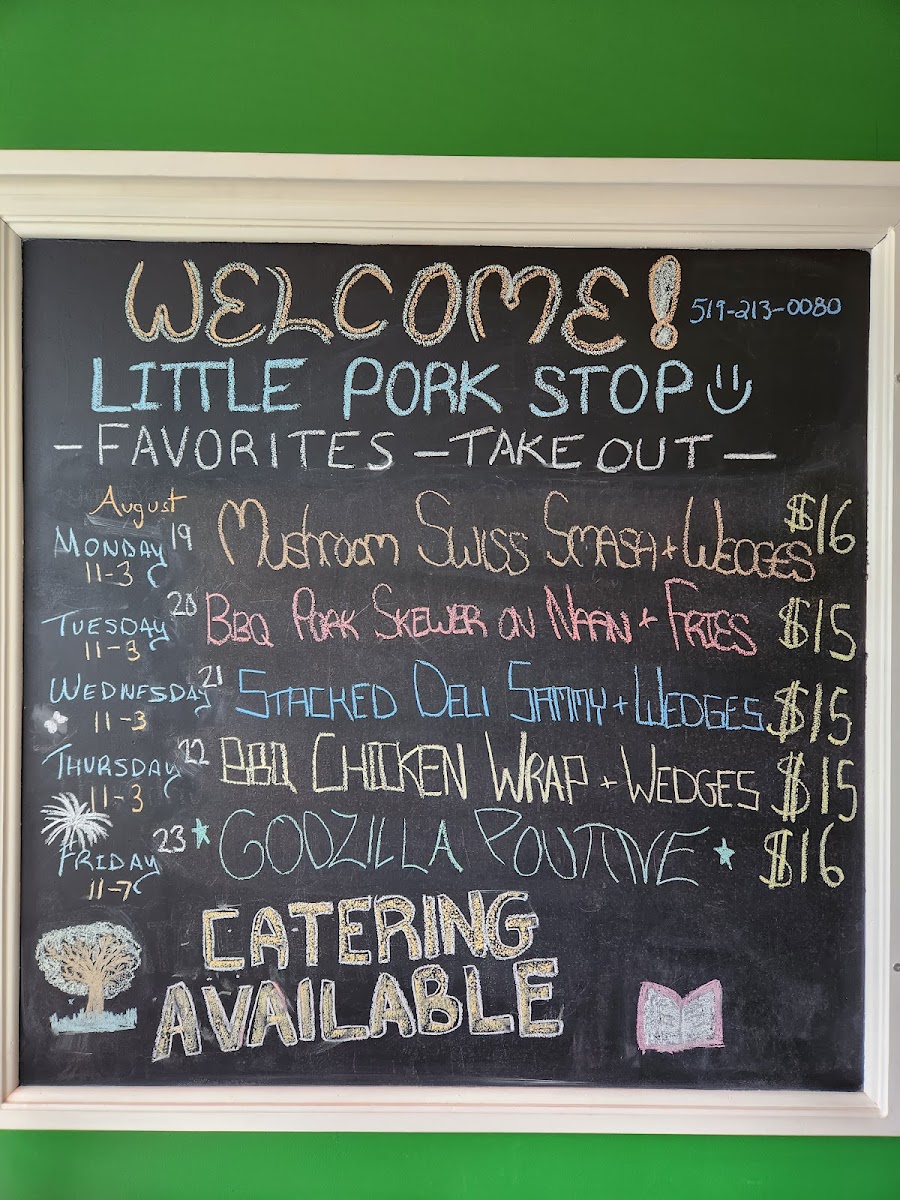 WELCOME! 519-213-0080
LITTLE PORK STOP
- FAVORITES - TAKE OUT -
August
MONDAY 19 Mushroom Swiss Smash + Wedges $16
11-3
TUESDAY 20 BBQ Pork Skewer on Naan + Fries $15
11-3
WEDNESDAY 21 Stacked Deli Sammy + Wedges $15
11-3
THURSDAY 22 BBQ Chicken Wrap + Wedges $15
11-3
FRIDAY 23 GODZILLA POUTINE $16
11-7
CATERING
AVAILABLE